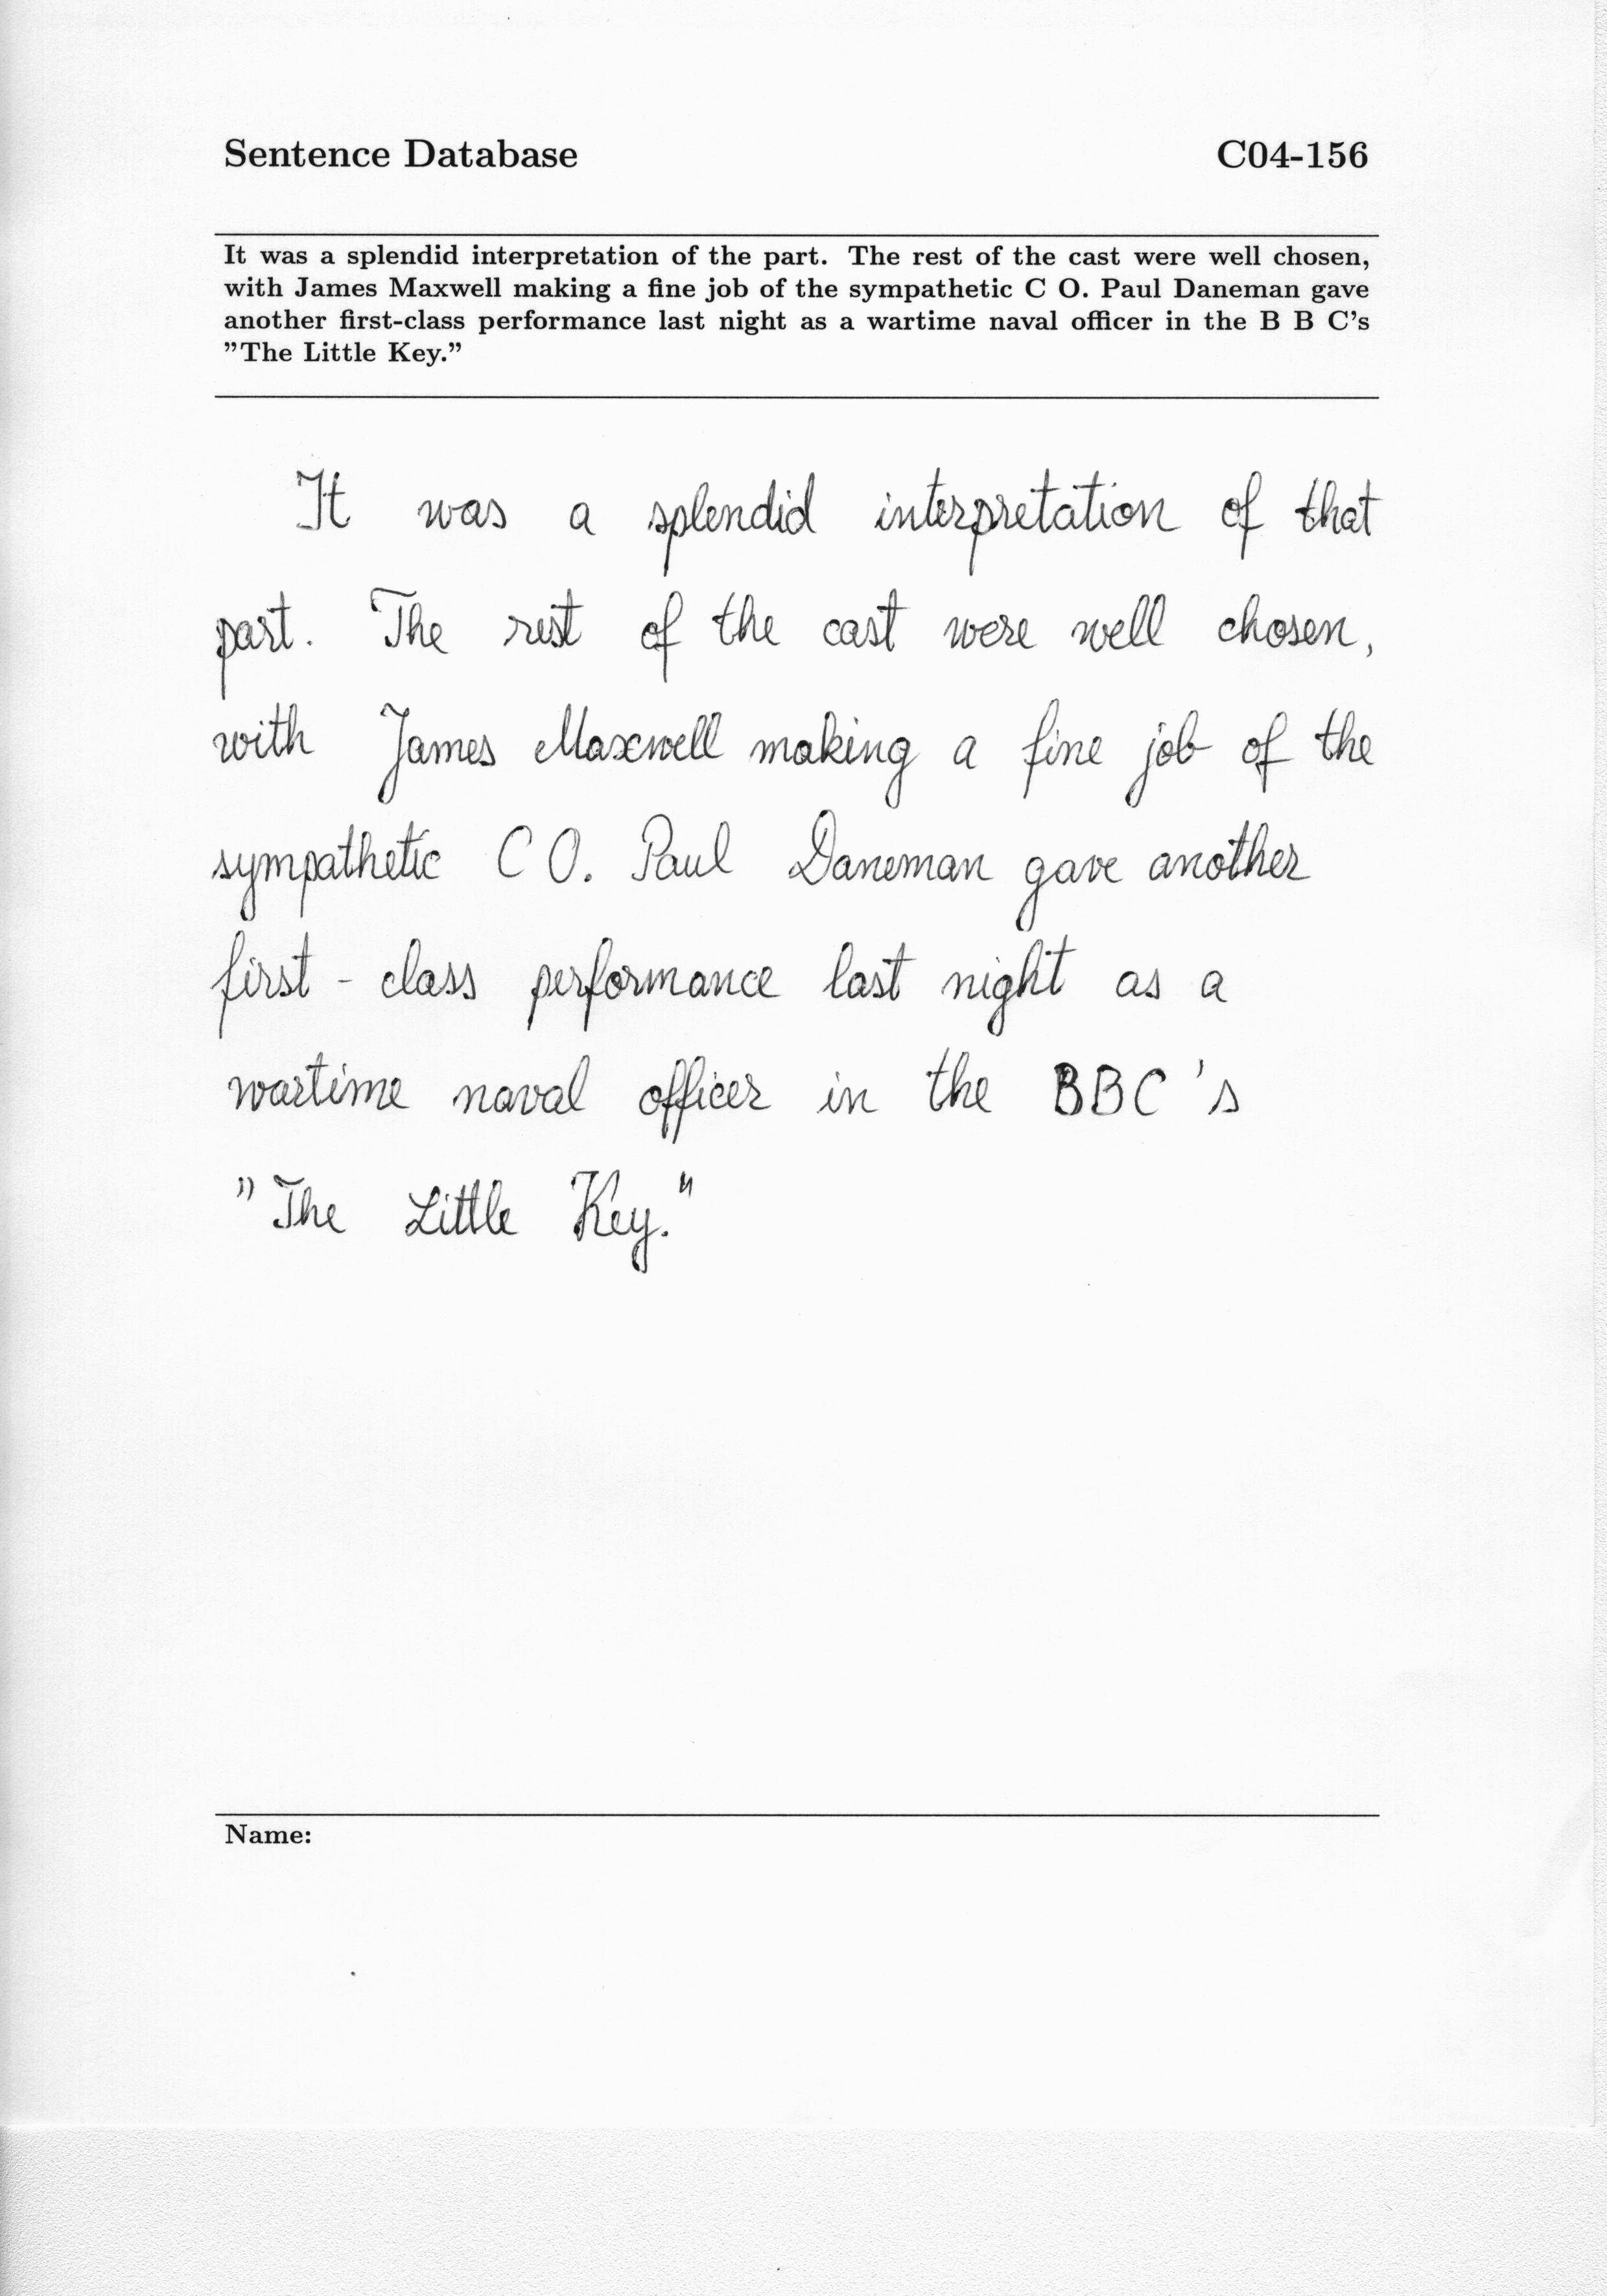 Sentence Database C04-156
It was a splendid interpretation of the part. The rest of the cast were well chosen,
with James Maxwell making a fine job of the sympathetic C O. Paul Daneman gave
another first-class performance last night as a wartime naval officer in the B B C's
"The Little Key."
It was a splendid interpretation of that
part. The rest of the cast were well chosen,
with James Maxwell making a fine job of the
sympathetic C O. Paul Daneman gave another
first - class performance last night as a
wartime naval officer in the BBC's
"The Little Key."
Name: